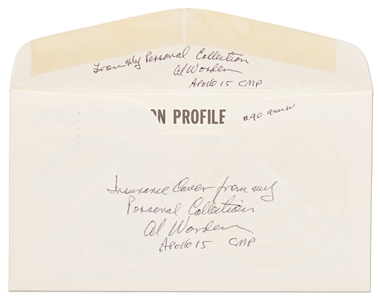 From My Personal Collection
Al Worden
APOLLO 15 CMP
ON PROFILE
Insurance Cover from my
Personal Collection
Al Worden
APOLLO 15 CMP